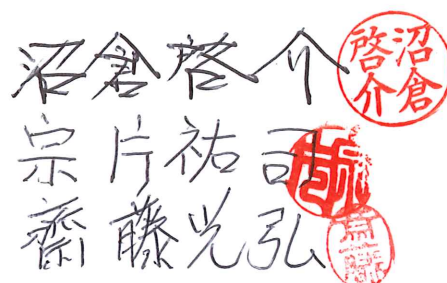 沼倉啓介
沼倉啓介
宗片祐司
齋藤光弘